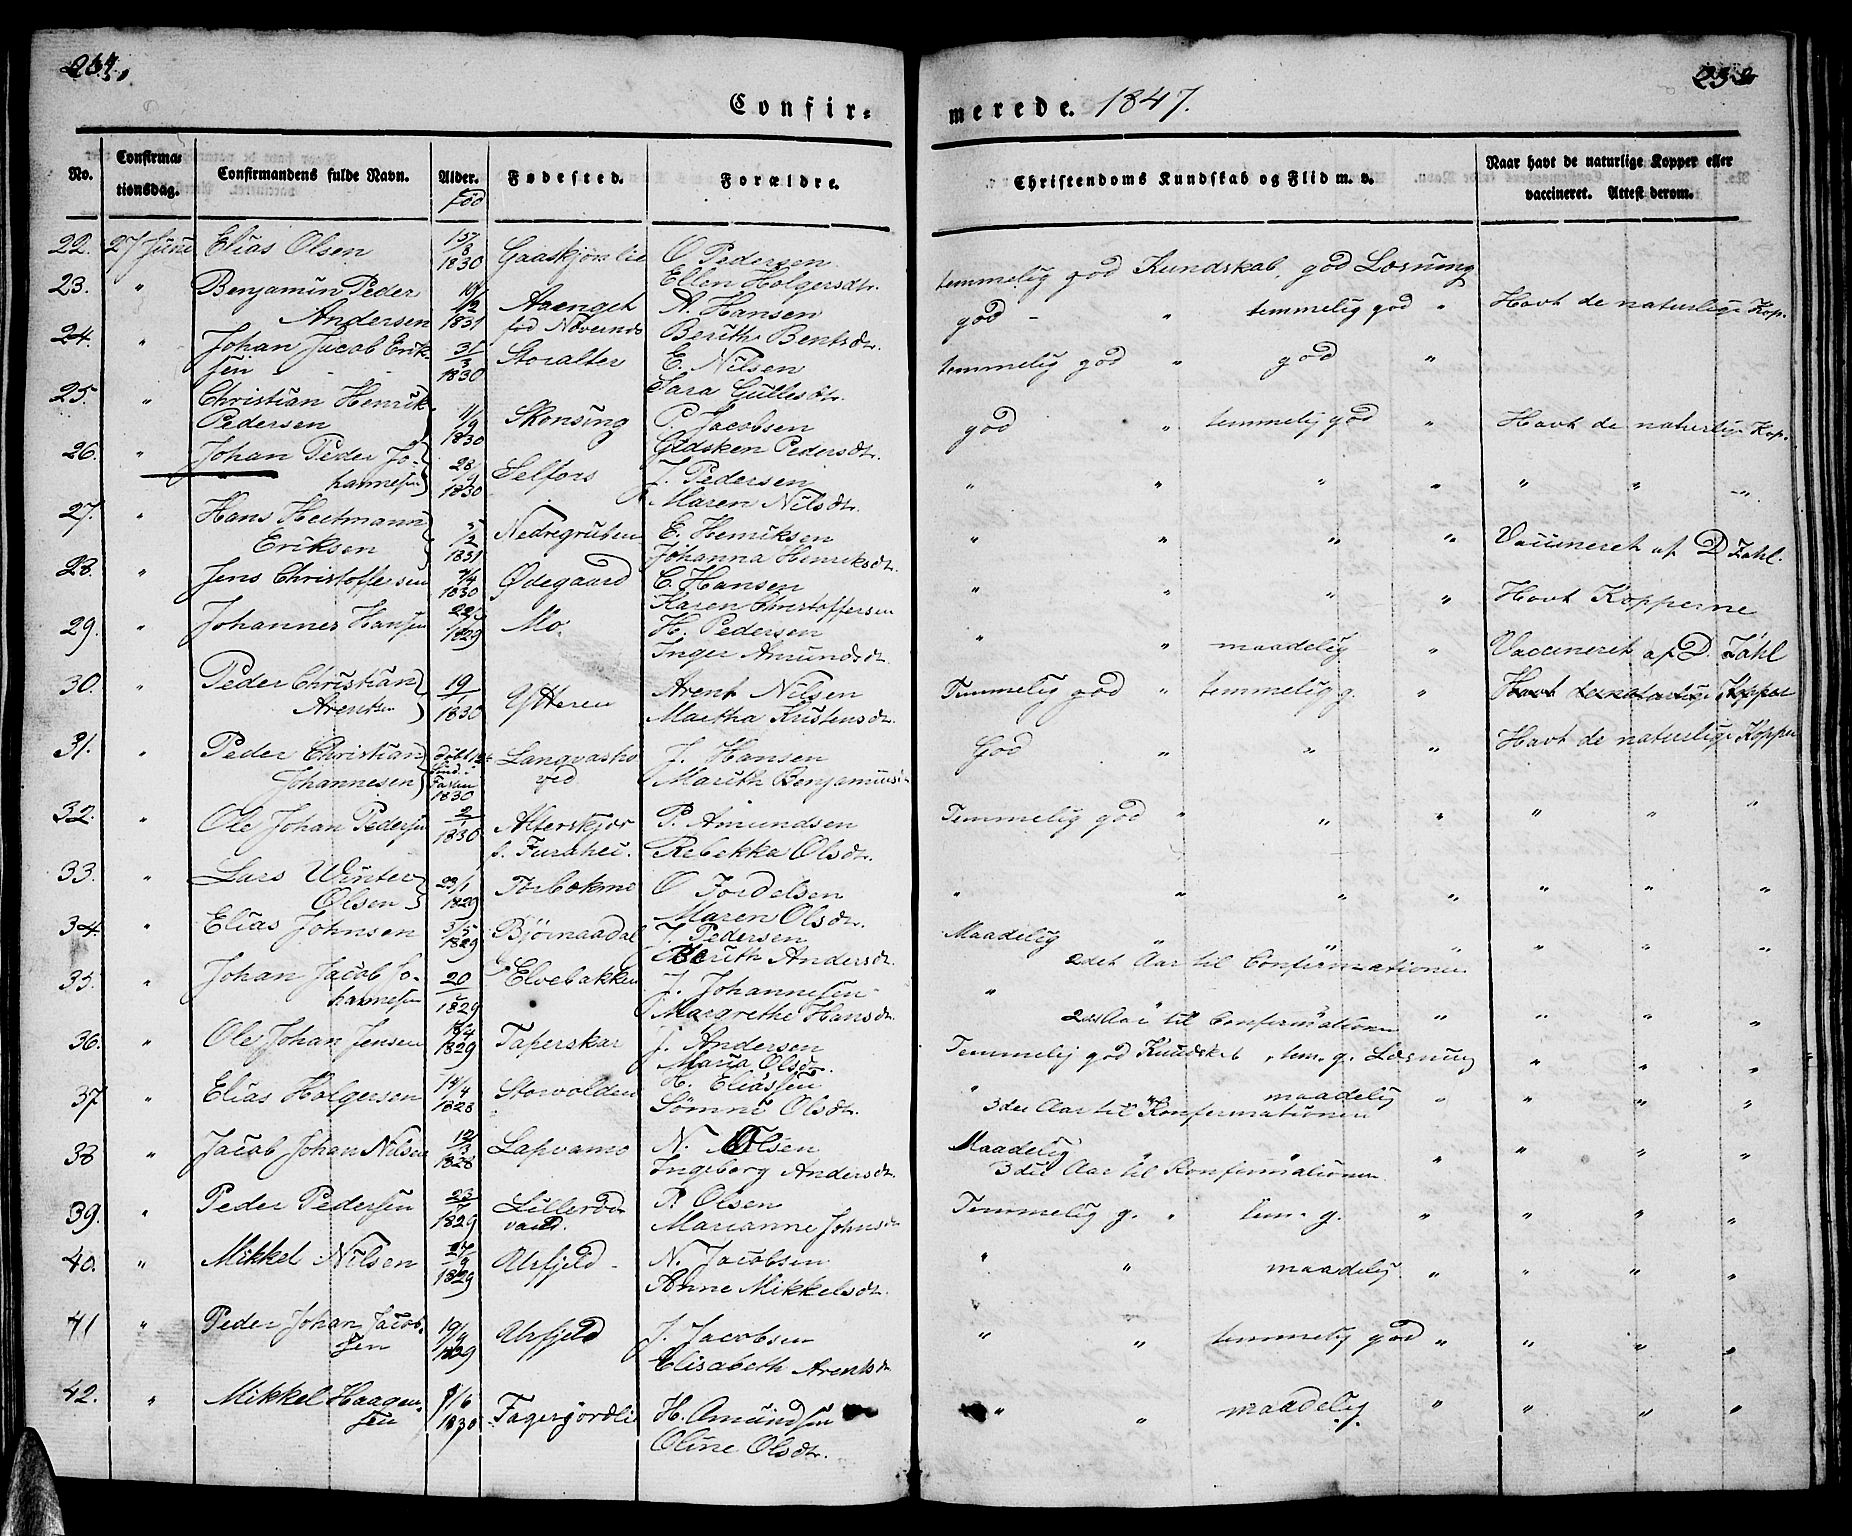 264.
Confir-
No. Confirmationsdag. Confirmandens fulde Navn. Alder. Fødested. Forældre.
Fød
22. 27 Juni Elias Olsen 15/8 1830 Gaaskjønlie O Pedersen
Ellen Holgersdtr.
23. " Benjamin Peder Andersen 1831 Avenget A. Hansen
Berith Bentsdtr.
24. " Johan Jacob Eriksen 31/3 1830 Storalter E. Nilsen
Sara Gullesdtr.
25. " Christian Henrik Pedersen 11/9 1830 Skonsing P. Jacobsen
Gidsken Pedersdtr.
26. " Johan Peder Johannesen 28/9 1830 Selfors J. Pedersen
Maren Nilsdtr.
27. " Hans Heitmann Eriksen 5/2 1831 Nedregruben E. Henriksen
Johanna Henriksdtr.
28. " Jens Christoffersen 9/4 1830 Ødegaard C. Hansen
Karen Christoffersen
29. " Johannes Hansen 1829 Mo. H. Pedersen
Inger Amundsdtr.
30. " Peder Christian Arentsen 19/ 1830 Ytteren Arent Nilsen
Martha Kristensdtr.
31. " Peder Christian Johannesen Døbt Sønd. i Fasten 1830 Langvashoved J. Hansen
Marith Benjaminsd
32. " Ole Johan Pedersen 2/1 1830 Alterskjær P. Amundsen
f. Furuhei. Rebekka Olsdtr.
33. " Lars Winter Olsen 23/1 1829 O Tordelsen
Maren Olsdtr.
34. " Elias Johnsen 3/5 1829 Bjørnaadal J. Pedersen
Berith Andersdtr
35. " Johan Jacob Johannesen 20/ 1829 Elvebakken J. Johannesen
Margrethe Hansdtr.
36. " Ole Johan Jensen 1829 Taperskar J. Andersen
Maria Olsdtr.
37 " Elias Holgersen 14/4 1828 Storvolden H. Eliassen
Sømne Olsdtr.
38 " Jacob Johan Nilsen 12/3 1828 Lapvamo N. Olsen
Ingeborg Andersdtr.
39. " Peder Pedersen 23/ 1829 P. Olsen
Marianne Johnsdtr
40. " Mikkel Nilsen 27/9 1829 Urfjeld N. Jacobsen
Anne Mikkelsdtr.
41 " Peder Johan Jacobsen 19/9 1829 Urfjeld J. Jacobsen
Elisabeth Arentsdtr
42. " Mikkel Haagensen 9/6 1830 Fagerjordlie H. Amundsen
Oline Olsdtr.
merede. 1847.
Christendoms Kundskab og Flid m. v. Naar havt de naturlige Kopper eller
vaccineret. Attest derom.
temmelig god Kundskab, god Læsning
god - " temmelig god " Havt de naturlige Kop.
temmelig god " god "
god " temmelig god " Havt de naturlige Kop.
" " " " " " -"-
" " " " Vaccineret af D Zahl.
" " " " Havt Kopperne
" " maadelig " Vaccineret af D. Zahl
Temmelig god " temmelig g. " Havt de naturlige Kopper
God " " " Havt de naturlige Kopper
Temmelig god " " " " " "
" " " " " " "
Maadelig " " " " " "
2det Aar til Confirmationen
"
2det Aar til Confirmationen " " " "
Temmelig god Kundskab, tem. g. Læsning " " "
" maadelig " " " "
3die Aar til Konfirmationen
Maadelig " " " " " "
3die Aar til Konfirmationen
Temmelig g. " tem. g. " " " "
" " maadelig " " " "
" " temmelig god " " " "
" " maadelig " " " "